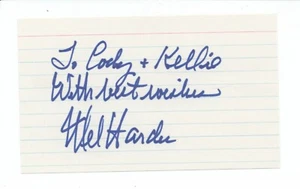 To Cody + Kellie
With best wishes
Mel Harder